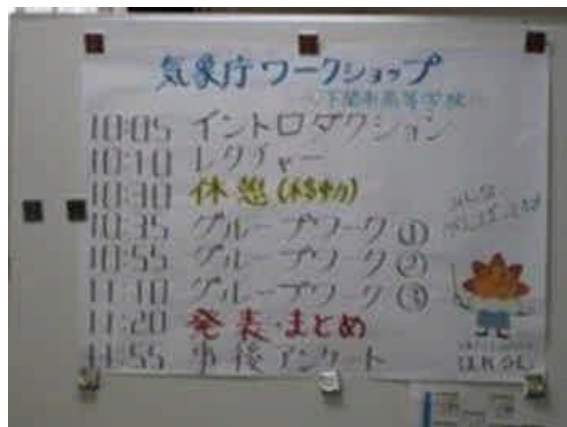 気象庁ワークショップ
下関南高等学校
10:05 イントロダクション
10:10 レクチャー
10:30 休憩(移動)
10:35 グループワーク①
10:55 グループワーク②
11:10 グループワーク③
11:20 発表・まとめ
11:55 事後アンケート
みんな
はれるん